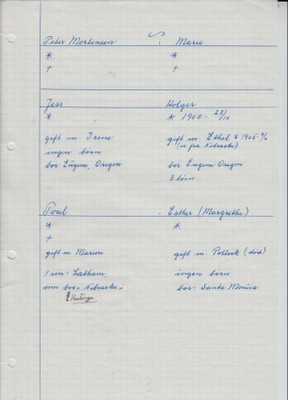 Peter Mortensen ∽ Marie
* *
† †
Jens Holger
* * 1900 - 23/10
gift m. Irene gift m. Ethel * 1905
ingen børn (er fra Nebraska)
bor Eugene, Oregon bor Eugene Oregon
3 børn.
Poul Esther (Margrethe)
* *
†
gift m. Marion gift m. Pollock (død)
1 søn: Latham, ingen børn
som bor i Nebraska. bor Santa Monica